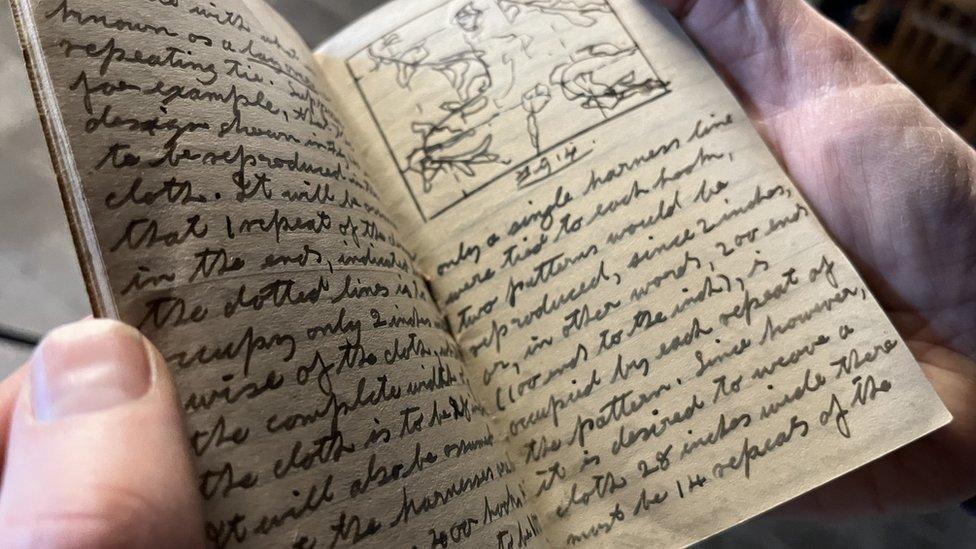 with
known as a
repeating tie.
for example, that
design shown in
to be reproduced in
cloth. It will be
that 1 repeat of the
in the ends, indicated
the dotted lines is
occupy only 2 inches
wise of the cloth,
the complete width
the cloth is to be 28
It will also be assumed
the harnesses
200 hooks
Fig 14.
only a single harness line
were tied to each hook,
two patterns would be
reproduced, since 2 inches,
or, in other words, 200 ends
(100 ends to the inch), is
occupied by each repeat of
the pattern. Since however,
it is desired to weave a
cloth 28 inches wide there
must be 14 repeats of the